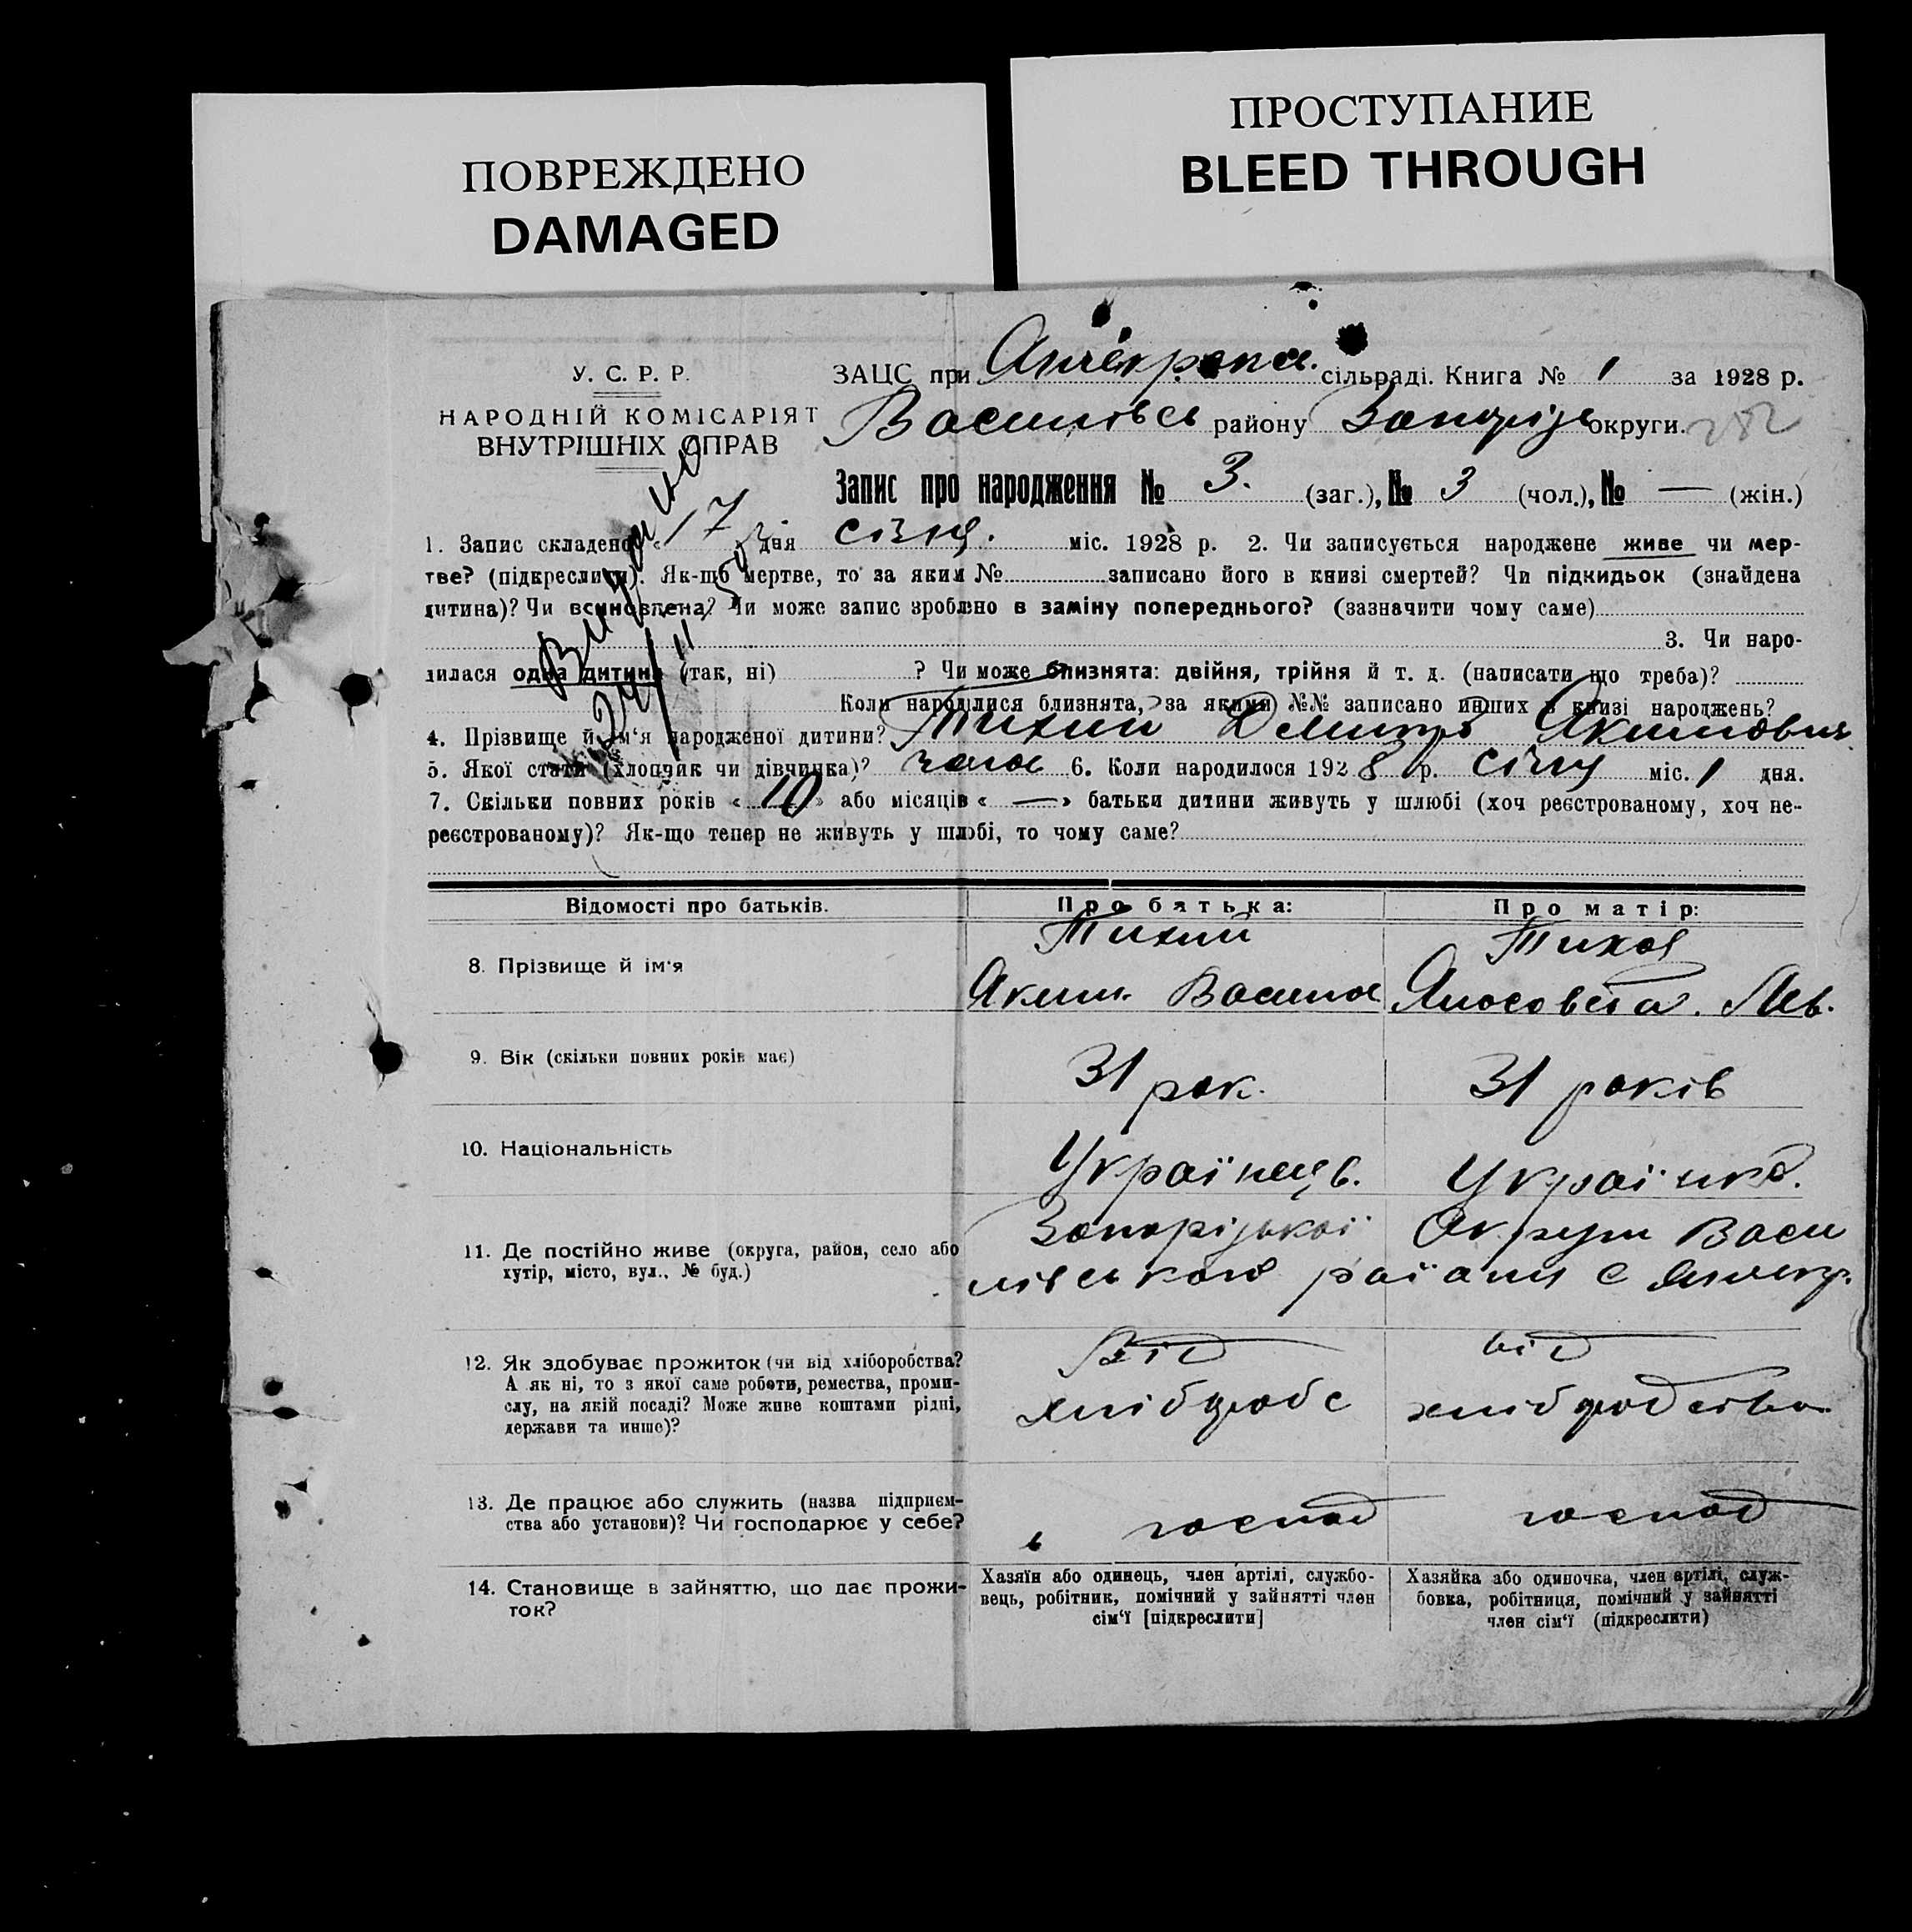 ПОВРЕЖДЕНО
DAMAGED
ПРОСТУПАНИЕ
BLEED THROUGH
У. С. Р. Р.
НАРОДНІЙ КОМІСАРІЯТ
ВНУТРІШНІХ СПРАВ
ЗАЦС при сільраді. Книга № 1 за 1928 р.
Василівсь району Запоріз округи. 282
Запис про народження № 3. (заг.), № 3 (чол.), № — (жін.)
Видано
1. Запис складено « 17 » дня січня. міс. 1928 р. 2. Чи записується народжене живе чи мер-
тве? (підкреслити). Як-що мертве, то за яким № записано його в книзі смертей? Чи підкидьок (знайдена
дитина)? Чи всиновлена? Чи може запис зроблено в заміну попереднього? (зазначити чому саме)
3. Чи наро-
дилася одна дитина (так, ні) ? Чи може близнята: двійня, трійня й т. д. (написати що треба)?
Коли народилися близнята, за якими №№ записано инших в книзі народжень?
4. Прізвище й ім‘я народженої дитини? Тихий Дмитро Якимович
5. Якої статі (хлопчик чи дівчинка)? чоло 6. Коли народилося 1928 р. січня міс. 1 дня.
7. Скільки повних років « 10 » або місяців « — » батьки дитини живуть у шлюбі (хоч реєстрованому, хоч не-
реєстрованому)? Як-що тепер не живуть у шлюбі, то чому саме?
Відомості про батьків. Про батька: Про матір:
8. Прізвище й ім‘я
Тихий
Яким. Васильо
Тихоя
Лев.
9. Вік (скільки повних років має)
31 рок.
31 років
10. Національність
Українець.
Українка.
11. Де постійно живе (округа, район, село або
хутір, місто, вул., № буд.)
Запорізької Округи Васи
лівського району с
12. Як здобуває прожиток (чи від хліборобства?
А як ні, то з якої саме роботи, ремества, проми-
слу, на якій посаді? Може живе коштами рідні,
держави та инше)?
Від
хліборобс
від
хліборобства
13. Де працює або служить (назва підприєм-
ства або установи)? Чи господарює у себе?
в господ
господ
14. Становище в зайняттю, що дає прожи-
ток?
Хазяїн або одинець, член артілі, службо-
вець, робітник, помічний у зайнятті член
сім‘ї [підкреслити]
Хазяйка або одиночка, член артілі, служ-
бовка, робітниця, помічний у зайнятті
член сім‘ї (підкреслити)